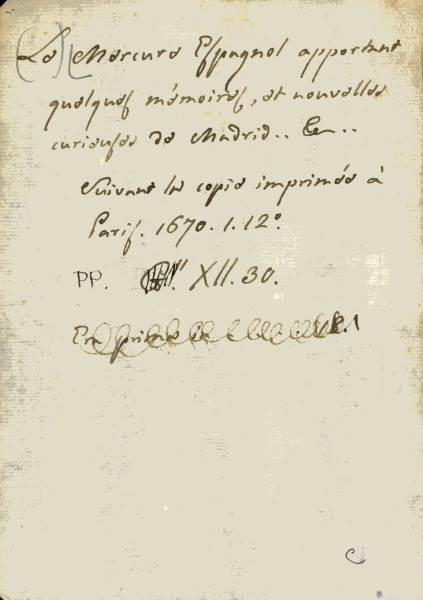 Le Mercure Espagnol apportant
quelques mémoires, et nouvelles
curieuses de Madrid..
Suivant la copie imprimée à
Paris. 1670. 1. 12º.
PP. XII. 30.